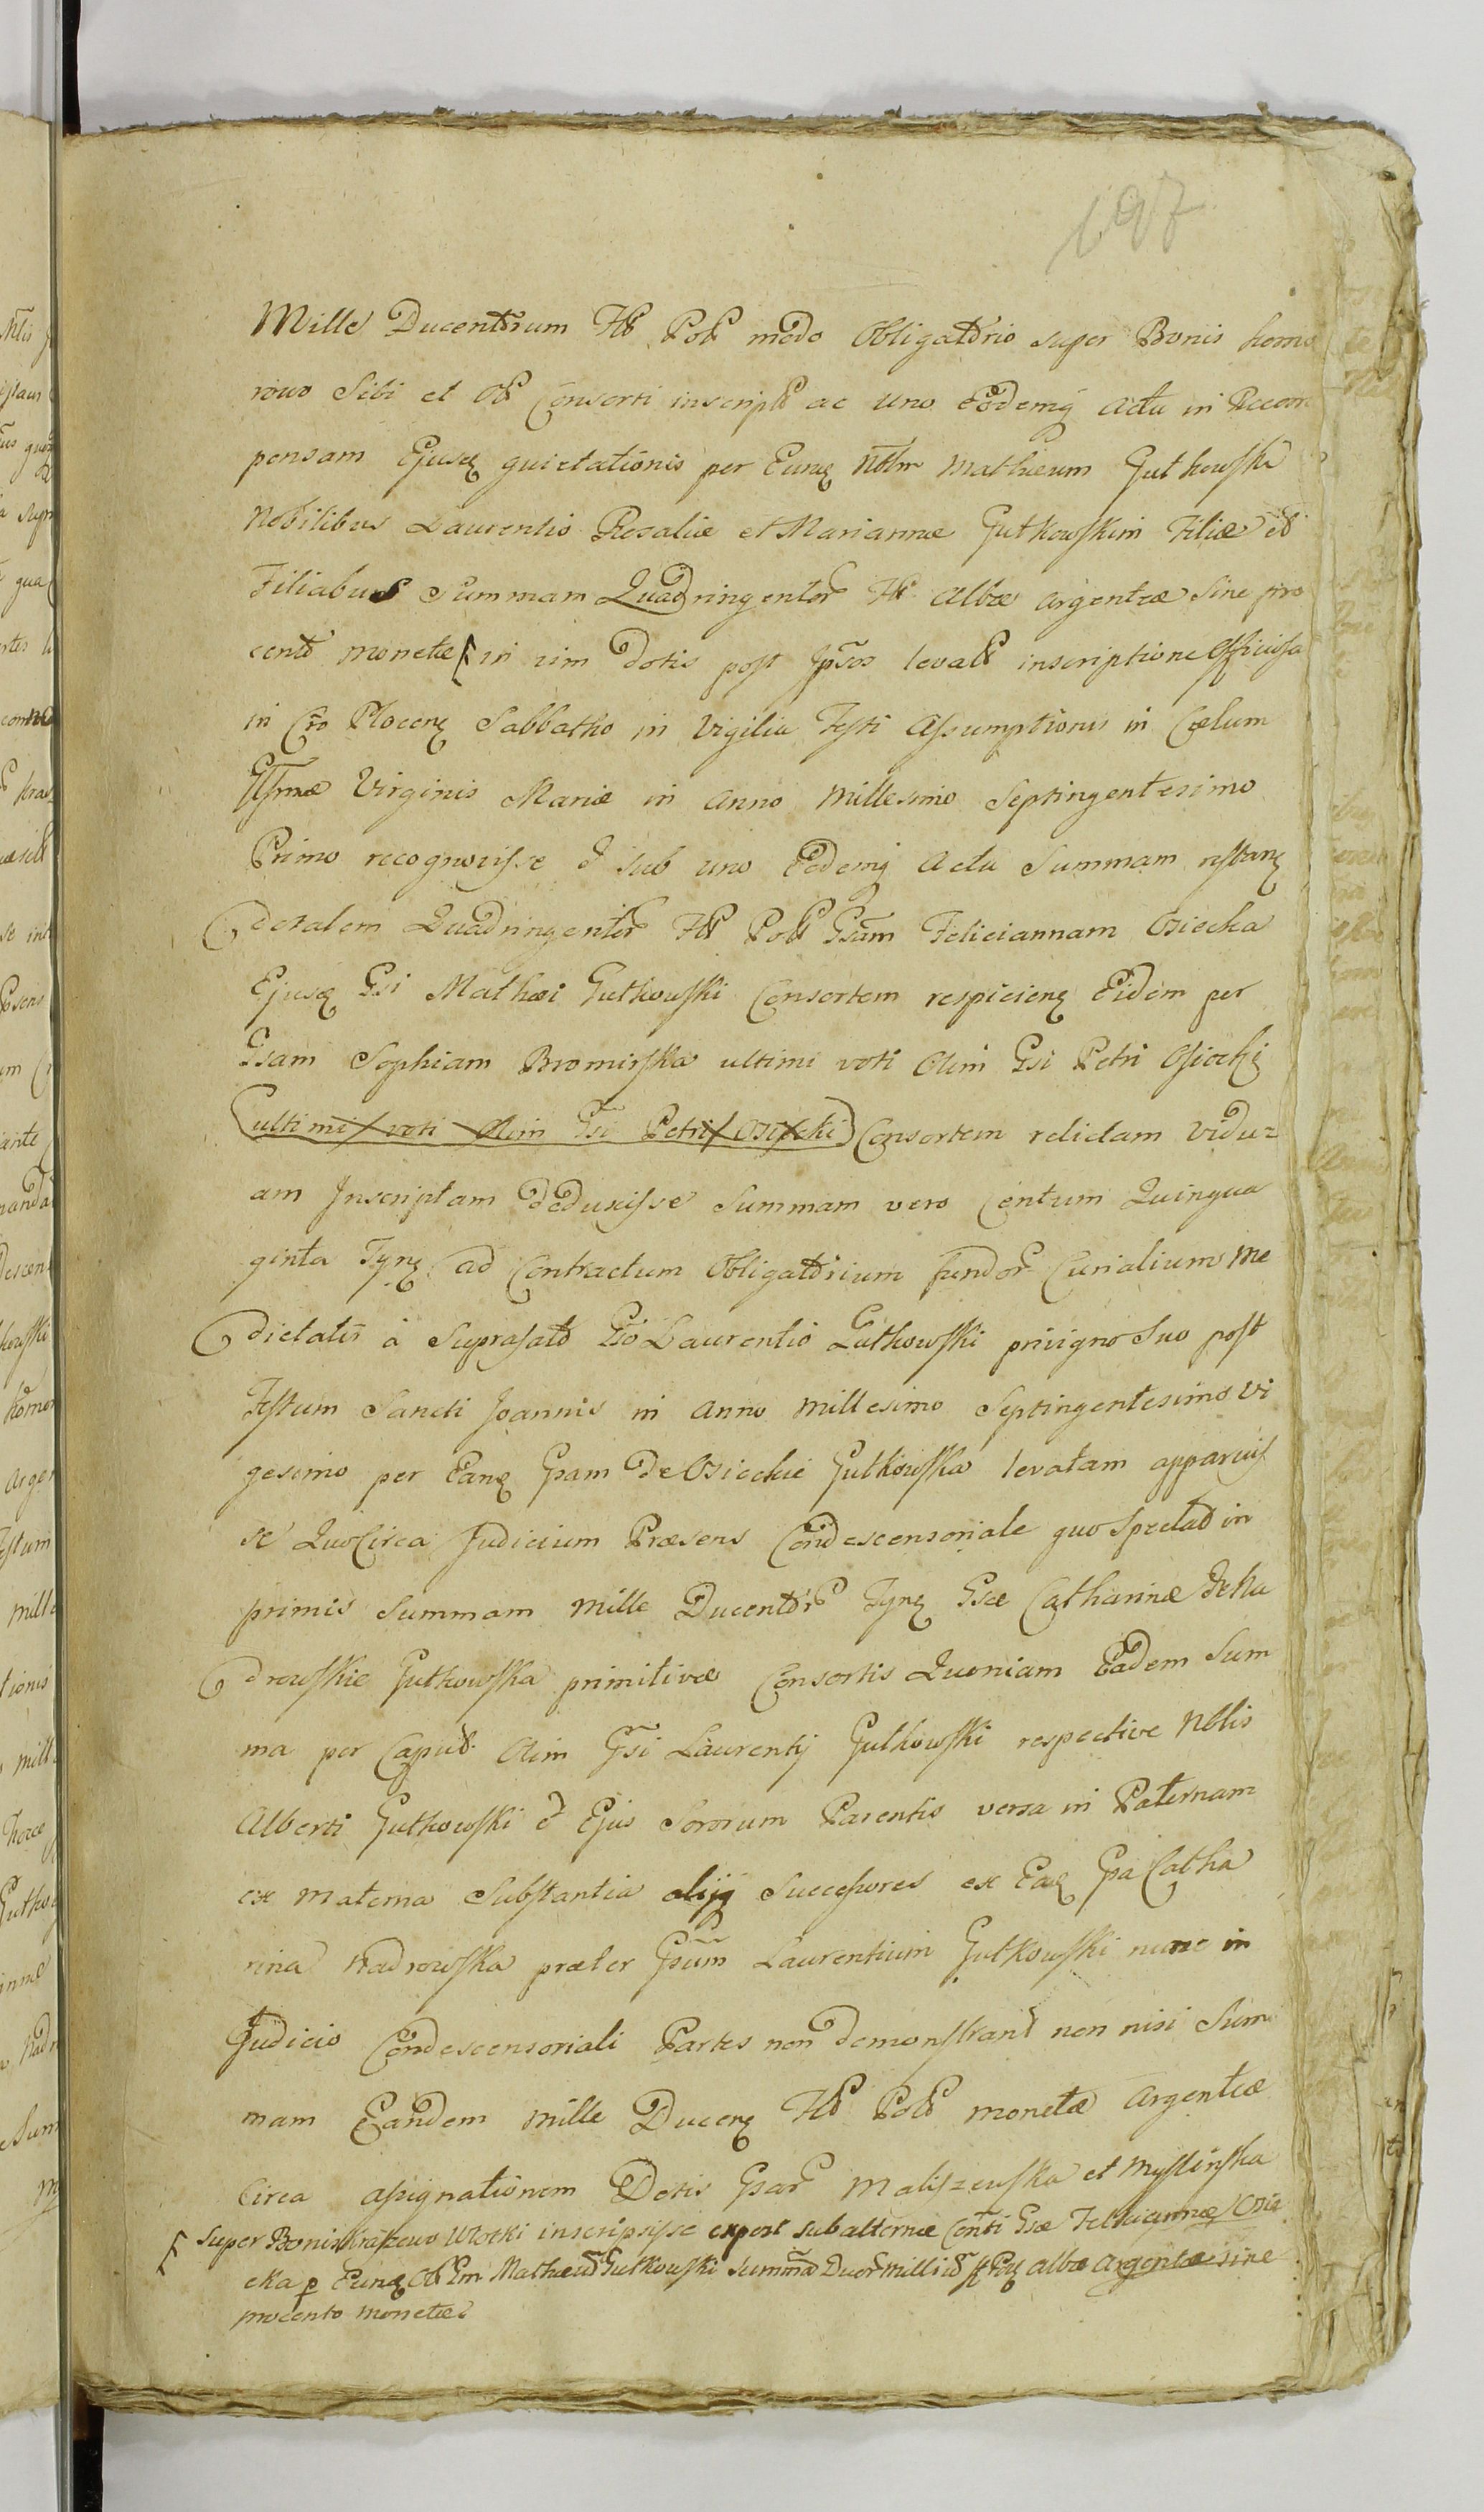 197
Mille Ducentorum Fl Pol modo Obligatorio super Bonis homo
rowo Sibi et Consorti inscript ac uno Eodemq actu in Recom
pensam Ejusq quietationis per Eunq Nblm Mathæum Gutkowski
Nobilibus Laurentio Rosaliæ et Mariannæ Gutkowskim Filiæ et
Filiabus Summam Quadringentor Fl albæ argenteæ sine pro
cento monetæ in vim Dotis post Ipsos levat inscriptione Officiosa
in Cro Plocenq Sabbatho in Vigilia Festi Assumptionis in Cælum
Virginis Mariæ in Anno Millesimo Septingentesimo
Primo recognovisse & sub uno Eodemq Actu Summam restanq
dotalem Quadringentor Fl Pol Gsam Feliciannam Osiecka
Ejusq Gsi Mathæi Gutkowski Consortem respicienq Eidem per
Gsam Sophiam Bromirska ultimi voti Olim Gsi Petri Osiecki
ultimi voti Olim Gsi Petri Osiecki Consortem relictam Vidu=
am Inscriptam deduxisse Summam vero Centum Quinqua
ginta Fynq ad Contractum Obligatorium fundor Curialium Me
dietatis à Suprafato Gso Laurentio Gutkowski privigno Suo post
Festum Sancti Joannis in Anno Millesimo Septingentesimo Vi
gesimo per Eanq Gsam de Osieckie Gutkowska levatam apparuis
se QuoCirca Judicium Præsens Condescensoriale quo Spectat in
primis Summam Mille Ducentor Fynq Gsæ Catharinæ de Na
drowskie Gutkowska primitivæ Consortis Quoniam Eadem Sum
ma per Caput Olim Gsi Laurentij Gutkowski respective Nblis
Alberti Gutkowski & Ejus Sororum Parentis versa in Paternam
ex Materna Substantia aliiq Successores ex Eaq Gsa Catha
rina Nadrowska præter Gsum Laurentium Gutkowski nunc in
Judicio Condescensoriali Partes non demonstrant non nisi Sum
mam Eandem Mille Ducenq Fl Pol monetæ Argenteæ
Circa assignationem Dotis Gsar Maliszewska et Myslinska
Super Bonis Kraszewo Witoski inscripsisse expost subalternæ Conti Gsæ Feliciannæ Osie
cka p Eunq Mathæum Gutkowski Summa Duor Milliu fl Polq albæ argenteæ sine
procento monetæ